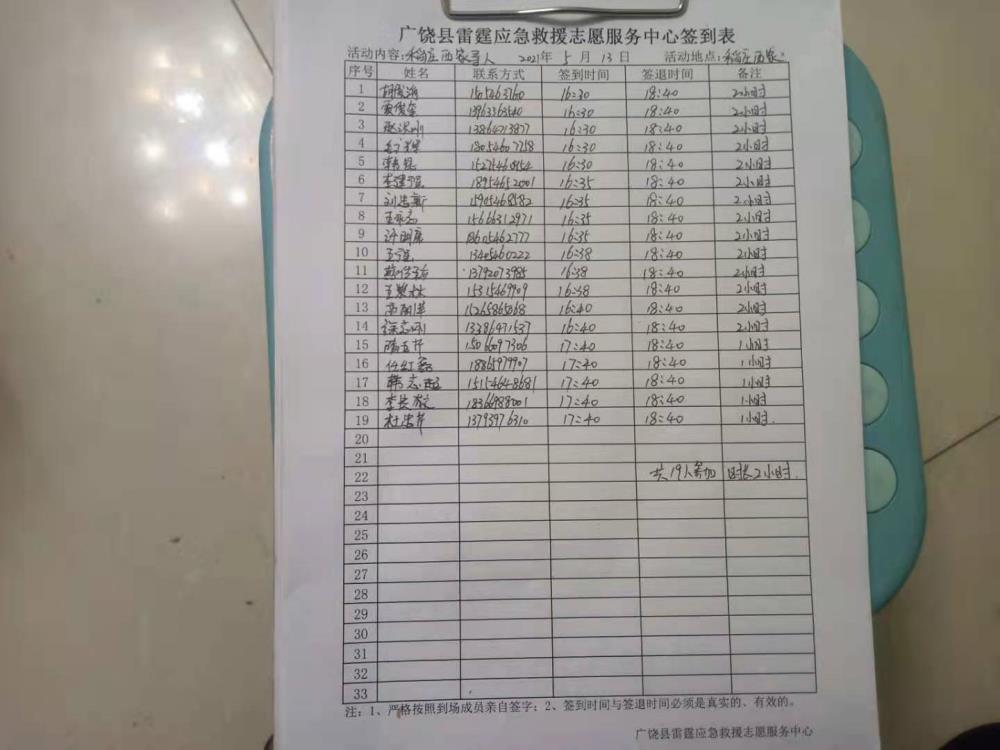 广饶县雷霆应急救援志愿服务中心签到表
活动内容：稻庄西寻人 2021年 5 月 13 日 活动地点：稻庄西
序号 姓名 联系方式 签到时间 签退时间 备注
1 16:30 18:40 2小时
2 13963363540 16:30 18:40 2小时
3 13864713877 16:30 18:40 2小时
4 18054607718 16:30 18:40 2小时
5 16:30 18:40 2小时
6 李建强 18954652001 16:35 18:40 2小时
7 刘忠新 15905468582 16:35 18:40 2小时
8 王永志 15666312971 16:35 18:40 2小时
9 许明 18605462777 16:35 18:40 2小时
10 王强 13405460222 16:38 18:40 2小时
11 13792073985 16:38 18:40 2小时
12 王 15315469909 16:38 18:40 2小时
13 15265865068 16:40 18:40 2小时
14 徐志刚 13386471537 16:40 18:40 2小时
15 隋 15066097306 17:40 18:40 1小时
16 任红 18865979907 17:40 18:40 1小时
17 韩志超 15154648681 17:40 18:40 1小时
18 李 18366988001 17:40 18:40 1小时
19 杜忠芹 13793976310 17:40 18:40 1小时
20
21
22 共19人参加 时长2小时.
23
24
25
26
27
28
29
30
31
32
33
注：1、严格按照到场成员亲自签字；2、签到时间与签退时间必须是真实的、有效的。
广饶县雷霆应急救援志愿服务中心